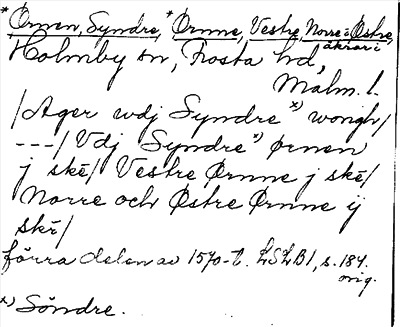 *Ørnen, Syndre, *Ørnne, Vestre, Norre i Østre,
åkrar i
Holmby sn, Frosta hd,
Malm. l.
/Ager wdj Syndre x) wongh/
---/ Vdj Syndre x) ørnen
j skē/ Vestre Ørnne j skē/
Norre och Østre Ørnne ij
skē/
förra delen av 1570-t. LSLB1, s. 184.
orig.
x) Söndre.